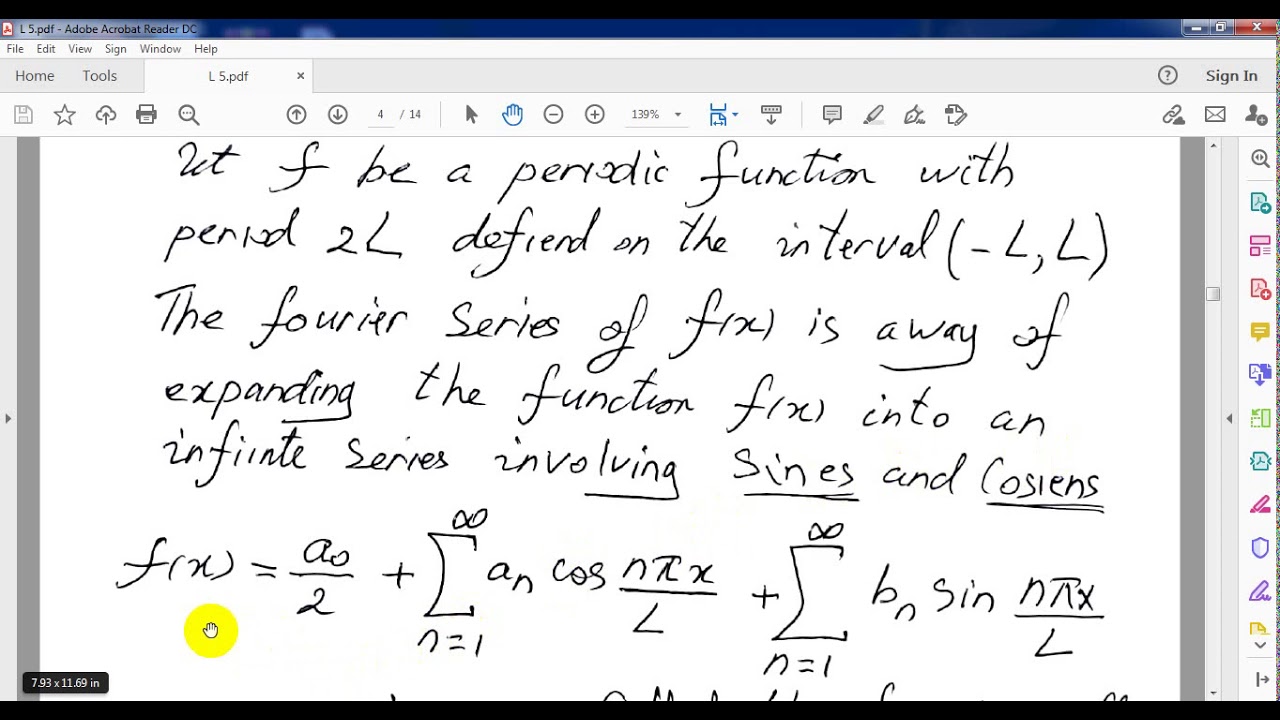 L 5.pdf - Adobe Acrobat Reader DC
File Edit View Sign Window Help
Home Tools L 5.pdf × Sign In
4 / 14 139%
Let f be a periodic function with
period 2L defiend on the interval (-L, L)
The fourier Series of f(x) is away of
expanding the function f(x) into an
infiinte series involving Sines and Cosiens
f(x) = a₀/2 + ∑_{n=1}^{∞} aₙ cos nπx/L + ∑_{n=1}^{∞} bₙ sin nπx/L
7.93 x 11.69 in